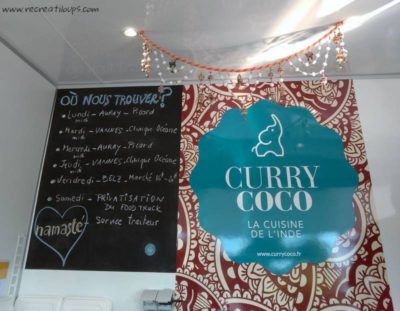 www.recreatiloups.com
OÙ NOUS TROUVER ?
Lundi - AURAY - Picard
midi
Mardi - VANNES - Clinique Océane
midi
Mercredi - AURAY - Picard
midi
Jeudi - VANNES - Clinique Océane
midi
Vendredi - BELZ - Marché
Samedi - PRIVATISATION
DU FOOD TRUCK
- Service traiteur
namaste
CURRY
COCO
LA CUISINE
DE L'INDE
www.currycoco.fr